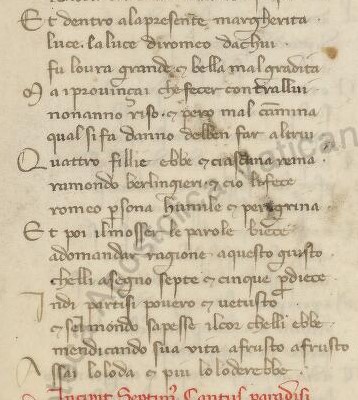 Et dentro ala presente margherita
luce . la luce di romeo da chui .
fu loura grande & bella mal gradita
Ma i prouinçai che fecer contrallui
non anno riso . & pero mal camina
qual si fa danno del ben far altrui
Quattro fillie ebbe & ciascuna reina .
ramondo berlingieri . & cio li fece
romeo psona humile & peregrina .
Et poi il mosser le parole biece
adomandar ragione . a questo giusto
chelli asegno septe & cinque p diece
Indi partisi pouero & uetusto
& sel mondo sapesse il cor chelli ebbe
mendicando sua uita a frusto a frusto
Assai lo loda & piu lo loderebbe .
Incipit Septim Cantus paradisi